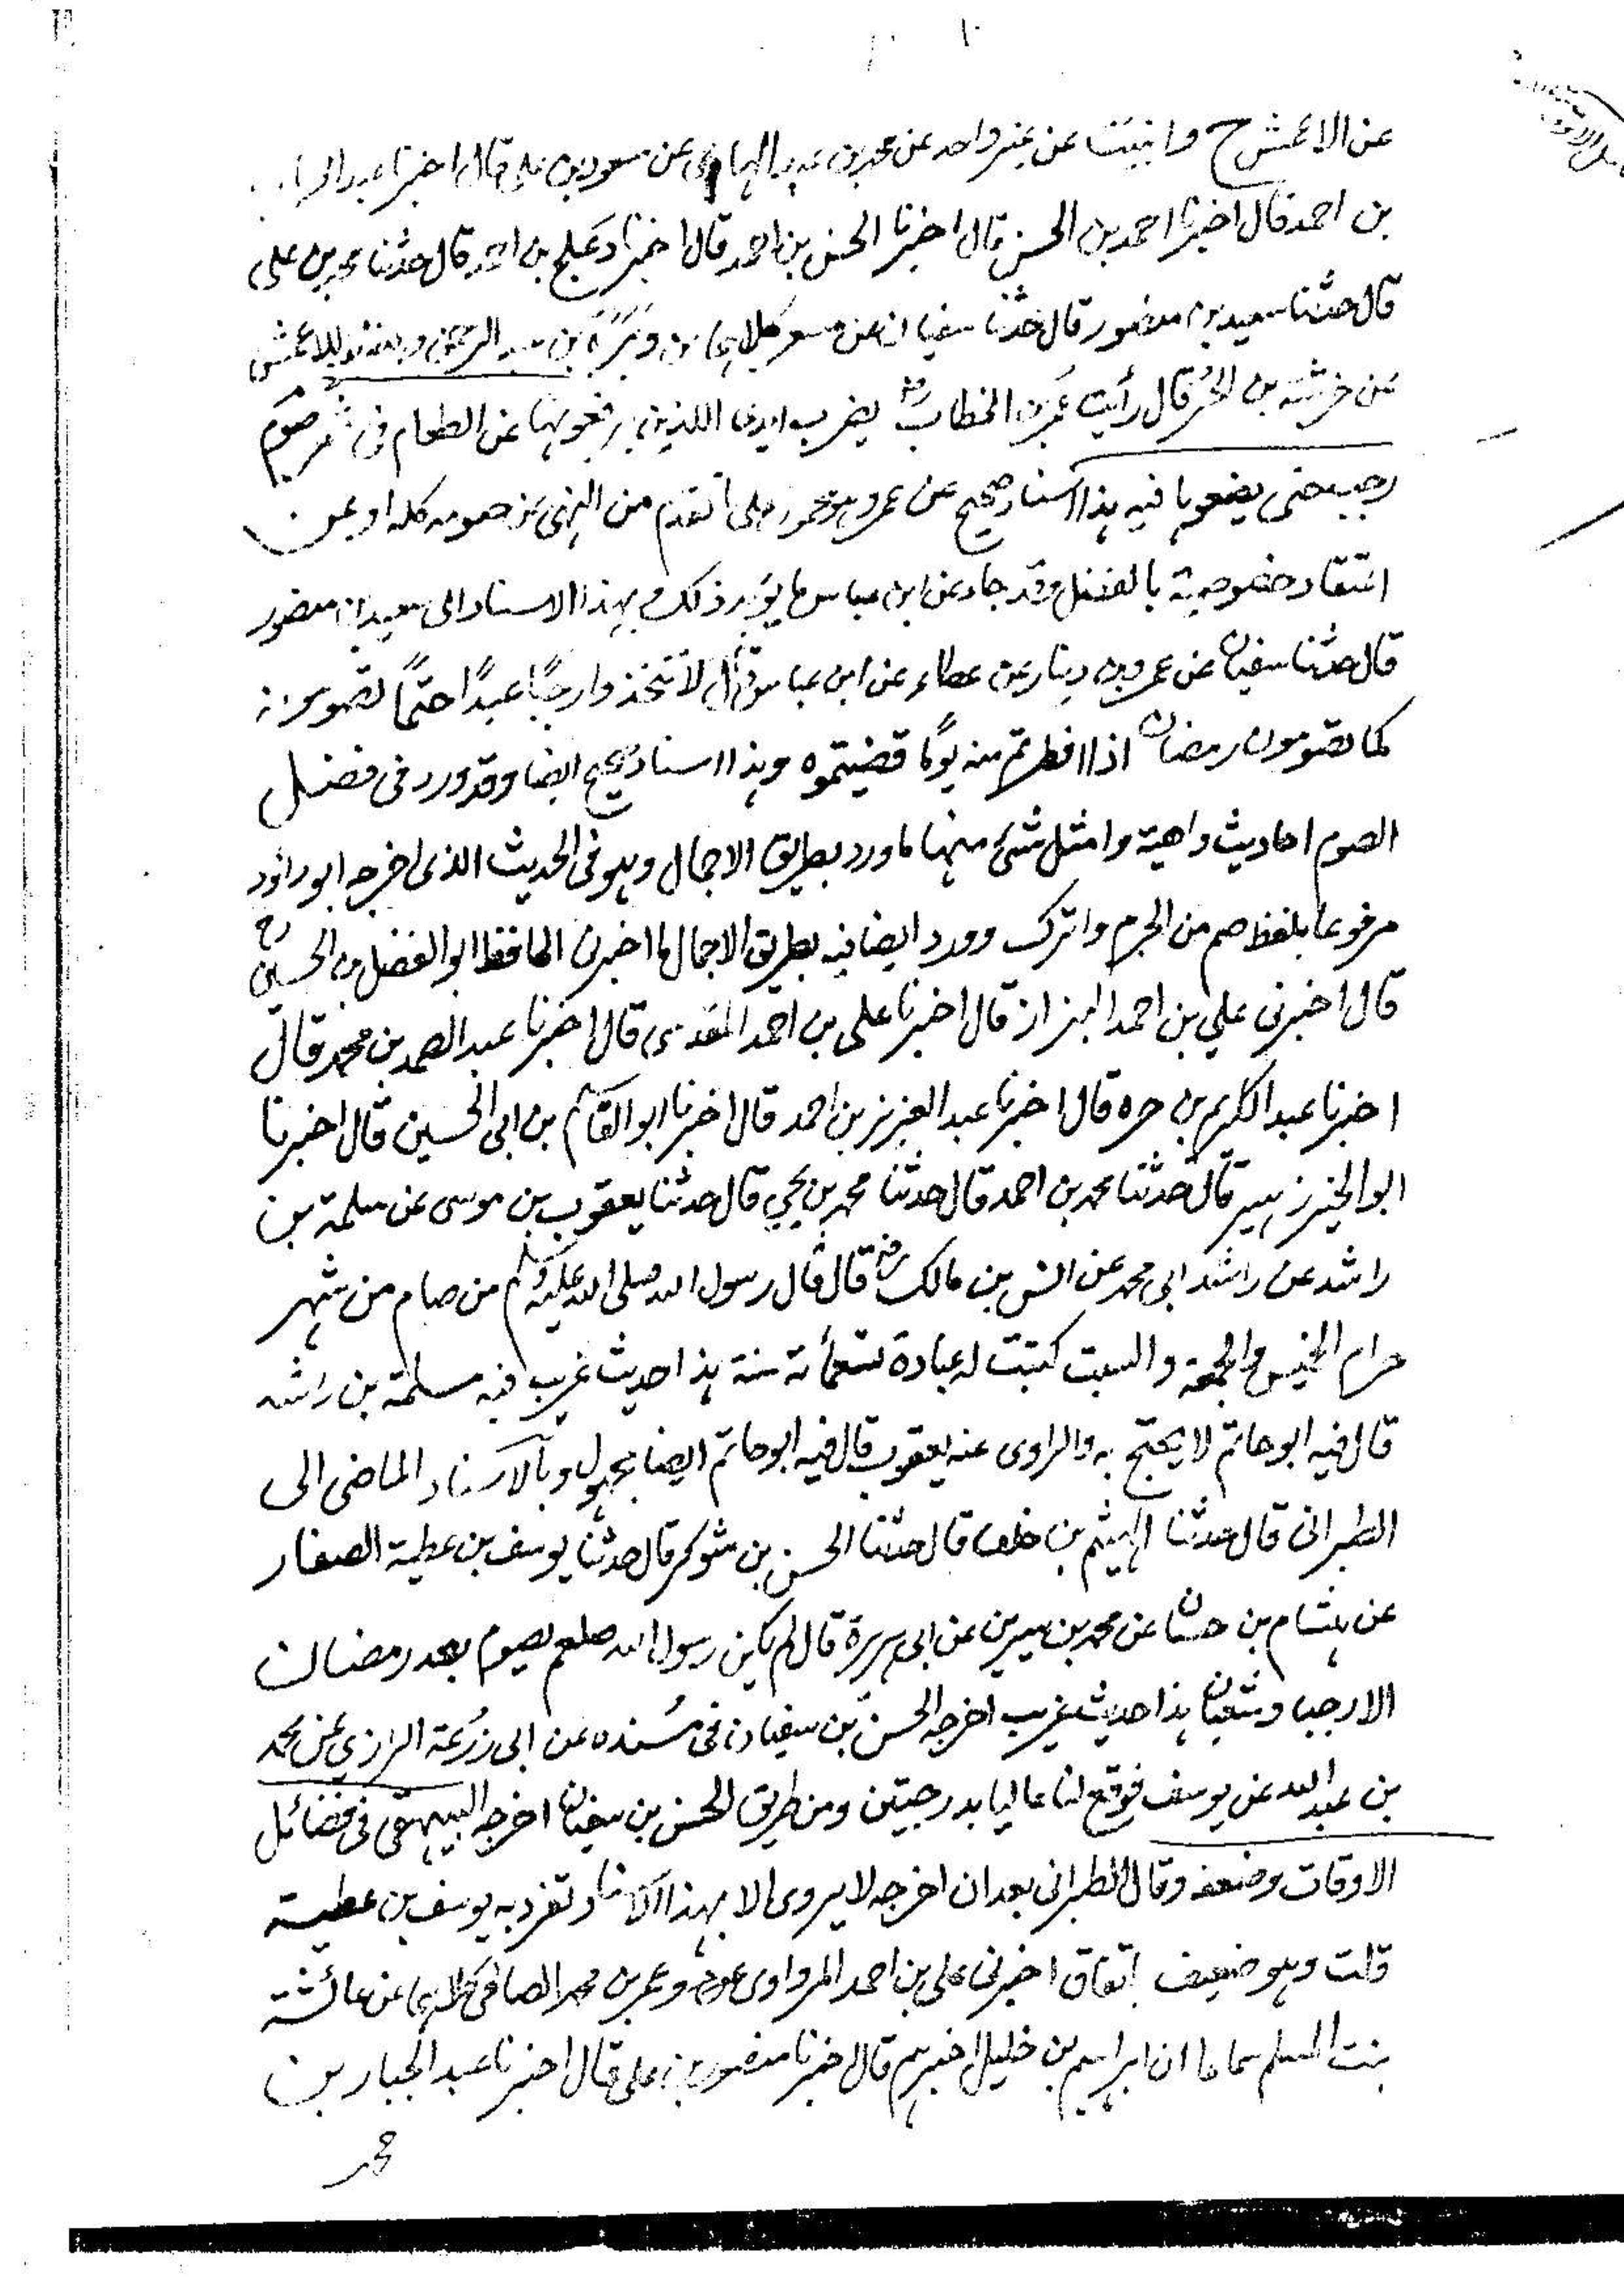 عن الاعمش ح وانبئت عن غير واحد عن محمد بن عبد الهادى عن مسعود بن على قال اخبرنا
بن احمد قال اخبرنا احمد بن الحسن قال اخبرنا الحسن بن احمد قال اخبرنا دعلج بن احمد قال حدثنا محمد بن على
قال حدثنا سعيد بن منصور قال حدثنا سفيان عن مسعر كلاهما عن وبرة بن عبد الرحمن للاعمش
عن خرشة بن الحر قال رأيت عمر بن الخطاب رض يضرب ايدى اللذين يرفعونها عن الطعام فى صوم
رجب حتى يضعوها فيه هذا اسناد صحيح عن عمر وهو محمول على ما تقدم من النهى عن صومه كله او عن
اعتقاد خصوصية بالفضل وقد جاء عن ابن عباس ما يؤيد ذلك وبهذا الاسناد الى سعيد بن منصور
قال حدثنا سفيان عن عمرو بن دينار عن عطاء عن ابن عباس قال لا تتخذوا رجبًا عيدًا حتمًا تصومونه
كما تصومون رمضان اذا افطرتم منه يومًا قضيتموه وهذا اسناد صحيح ايضا وقد ورد فى فضل
الصوم احاديث واهية وامثل شئ منها ما ورد بطريق الاجمال وهو فى الحديث الذى اخرجه ابو داؤد
مرفوعا بلفظ صم من الحرم واترك وورد ايضا فيه بطريق الاجمال ما اخبرنى الحافظ ابو الفضل بن الحسين رح
قال اخبرنى علي بن احمد البزاز قال اخبرنا على بن احمد المقدسى قال اخبرنا عبد الصمد بن محمد قال
اخبرنا عبد الكريم بن حمزه قال اخبرنا عبد العزيز بن احمد قال اخبرنا ابو القاسم بن ابى الحسين قال اخبرنا
ابو الخير زهير قال حدثنا محمد بن احمد قال حدثنا محمد بن يحيي قال حدثنا يعقوب بن موسى عن مسلمة بن
راشد عن راشد ابى محمد عن انس بن مالك رض قال قال رسول الله صلى الله عليه وسلم من صام من شهر
حرام الخميس والجمعة والسبت كتبت له عبادة تسعمأئة سنة هذا حديث غريب فيه مسلمة بن راشد
قال فيه ابو حاتم لا يحتج به والراوى عنه يعقوب قال فيه ابو حاتم ايضا مجهول وبالاسناد الماضى الى
الطبرانى قال حدثنا الهيثم بن خلف قال حدثنا الحسن بن شوكر قال حدثنا يوسف بن عطية الصفار
عن هشام بن حسان عن محمد بن سيرين عن ابى هريرة قال لم يكن رسول الله صلعم يصوم بعد رمضان
الا رجبا وشعبان هذا حديث غريب اخرجه الحسن بن سفيان فى مسنده عن ابى زرعة الرازي عن محمد
بن عبد الله عن يوسف فوقع لنا عاليا بدرجتين ومن طريق الحسن بن سفيان اخرجه البيهقى فى فضائل
الاوقات وضعفه وقال الطبرانى بعد ان اخرجه لا يروى الا بهذا الاسناد تفرد به يوسف بن عطية
قلت وهو ضعيف اتفاق اخبرنى على بن احمد المرداوى وعمر بن محمد الصالحى كلاهما عن عائشة
بنت المسلم سماعا ان ابراهيم بن خليل اخبرهم قال اخبرنا منصور بن على قال اخبرنا عبد الجبار بن
محمد